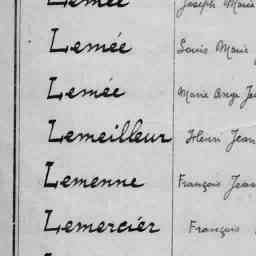 Lemée Joseph Marie
Lemée Louis Marie
Lemée Marie Ange
Lemeilleur Henri Jean
Lemenne François Jean
Lemercier François